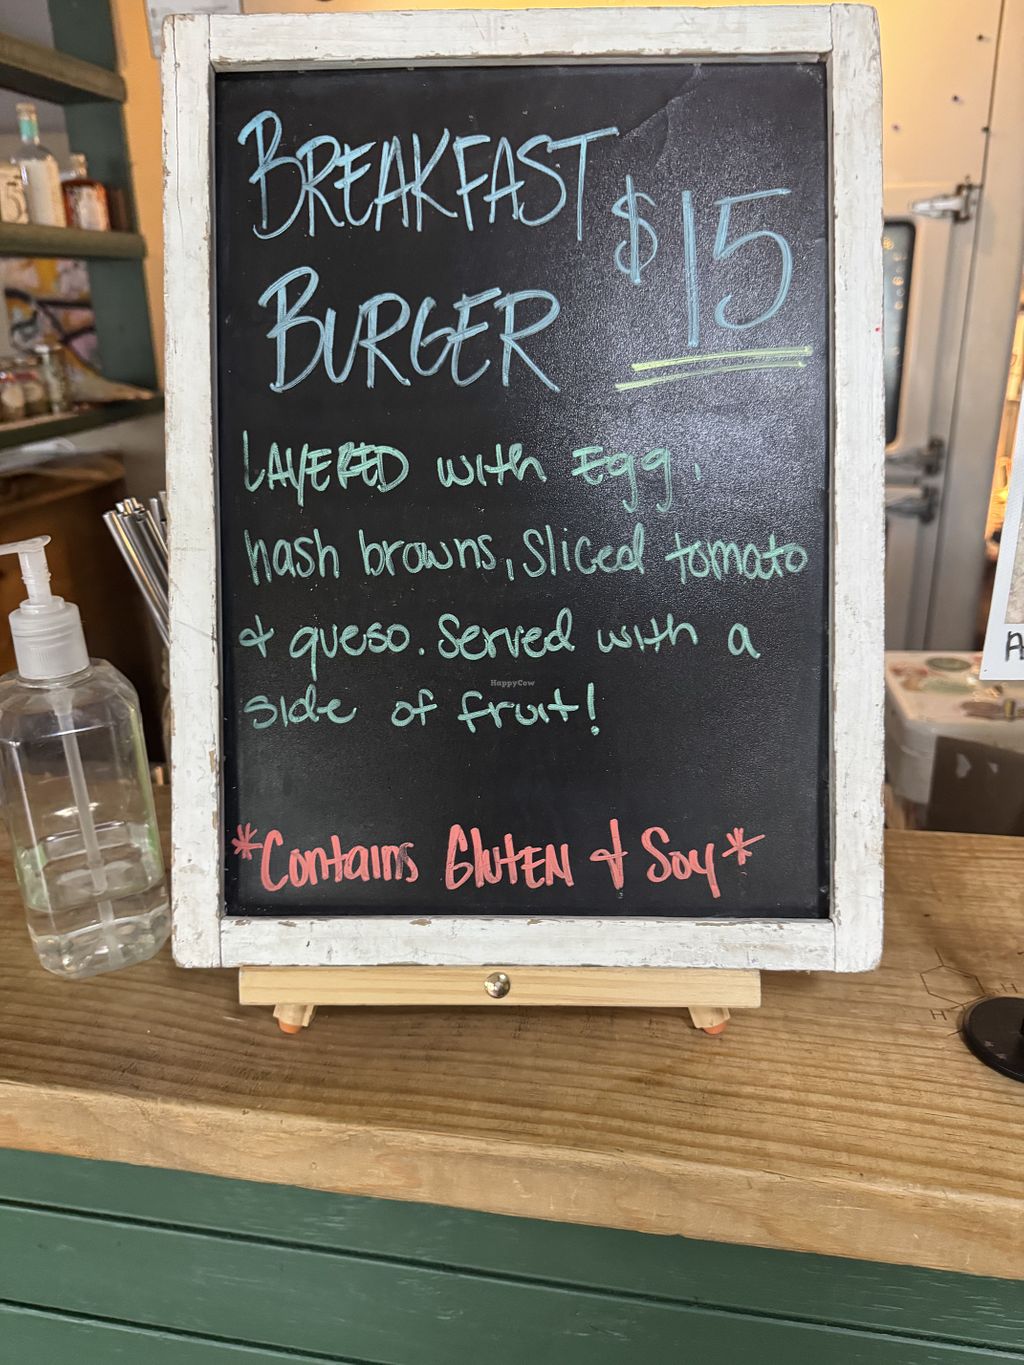 BREAKFAST
BURGER
$15
LAYERED with Egg,
hash browns, sliced tomato
& queso. Served with a
side of fruit!
*Contains GlutEN & Soy*
HappyCow
5
H
H
A